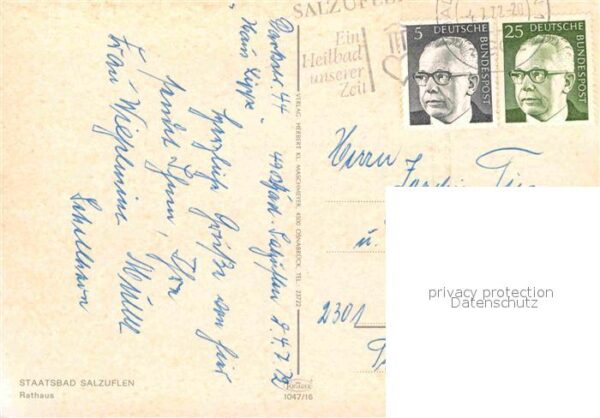 SALZUFLEN
Ein
Heilbad
unserer
Zeit
4.7.72-20
5 DEUTSCHE BUNDESPOST
25 DEUTSCHE BUNDESPOST
Parkstr. 44
"Haus Lippe" 49 Bad-Salzuflen d. 4.7.72
Herzliche Grüße von hier
sendet Ihnen, Ihre
Frau Wilhelmine Müller
VERLAG: HERBERT KL. MASCHMEYER, 4500 OSNABRÜCK, TEL. 23722
Herrn
u.
2301
privacy protection
Datenschutz
STAATSBAD SALZUFLEN
Rathaus
1047/16